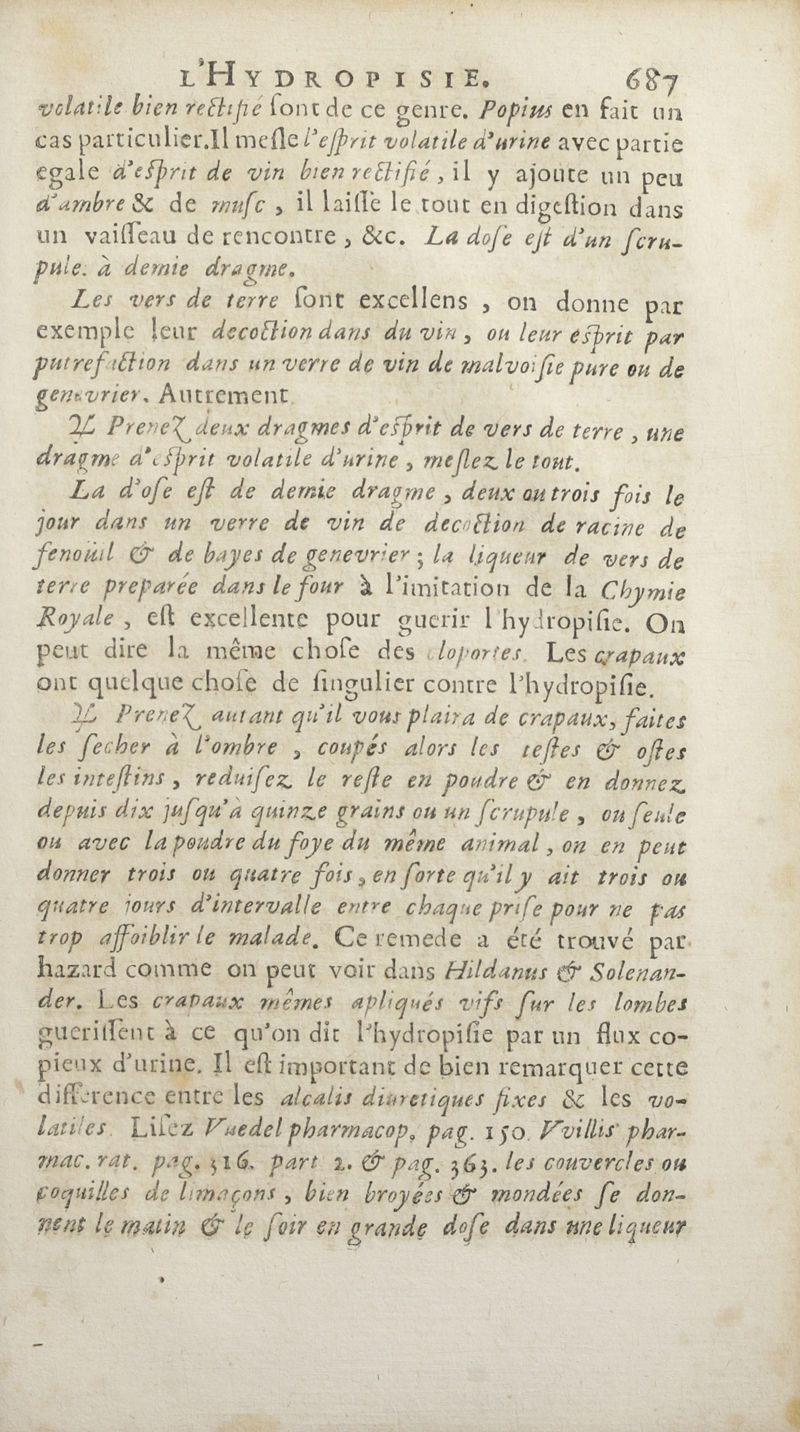 L'HYDROPISIE. 687
volatile bien rectifié ſont de ce genre. Popius en fait un
cas particulier.Il meſle l'eſprit volatile d'urine avec partie
egale d'eſprit de vin bien rectifié, il y ajoute un peu
d'ambre & de muſc, il laiſſe le tout en digeſtion dans
un vaiſſeau de rencontre, &c. La doſe eſt d'un ſcru-
pule. à demie dragme.
Les vers de terre ſont excellens, on donne par
exemple leur decoction dans du vin, ou leur eſprit par
putrefaction dans un verre de vin de malvoiſie pure ou de
genevrier. Autrement
♃ Prenez deux dragmes d'eſprit de vers de terre, une
dragme d'eſprit volatile d'urine, meſlez le tout.
La d'oſe eſt de demie dragme, deux ou trois fois le
jour dans un verre de vin de decoction de racine de
fenoüil & de bayes de genevrier; la liqueur de vers de
terre preparée dans le four à l'imitation de la Chymie
Royale, eſt excellente pour guerir l'hydropiſie. On
peut dire la même choſe des cloportes. Les crapaux
ont quelque choſe de ſingulier contre l'hydropiſie.
♃ Prenez autant qu'il vous plaira de crapaux, faites
les ſecher à l'ombre, coupés alors les teſtes & oſtes
les inteſtins, reduiſez le reſte en poudre & en donnez
depuis dix juſqu'à quinze grains ou un ſcrupule, ou ſeule
ou avec la poudre du foye du même animal, on en peut
donner trois ou quatre fois, en ſorte qu'il y ait trois ou
quatre jours d'intervalle entre chaque priſe pour ne pas
trop affoiblir le malade. Ce remede a été trouvé par
hazard comme on peut voir dans Hildanus & Solenan-
der. Les crapaux mêmes apliqués vifs ſur les lombes
gueriſſent à ce qu'on dit l'hydropiſie par un flux co-
pieux d'urine. Il eſt important de bien remarquer cette
difference entre les alcalis diuretiques fixes & les vo-
latiles. Liſez Vuedel pharmacop. pag. 150. Vvillis phar-
mac. rat. pag. 316. part 2. & pag. 363. les couvercles ou
coquilles de limaçons, bien broyées & mondées ſe don-
nent le matin & le ſoir en grande doſe dans une liqueur